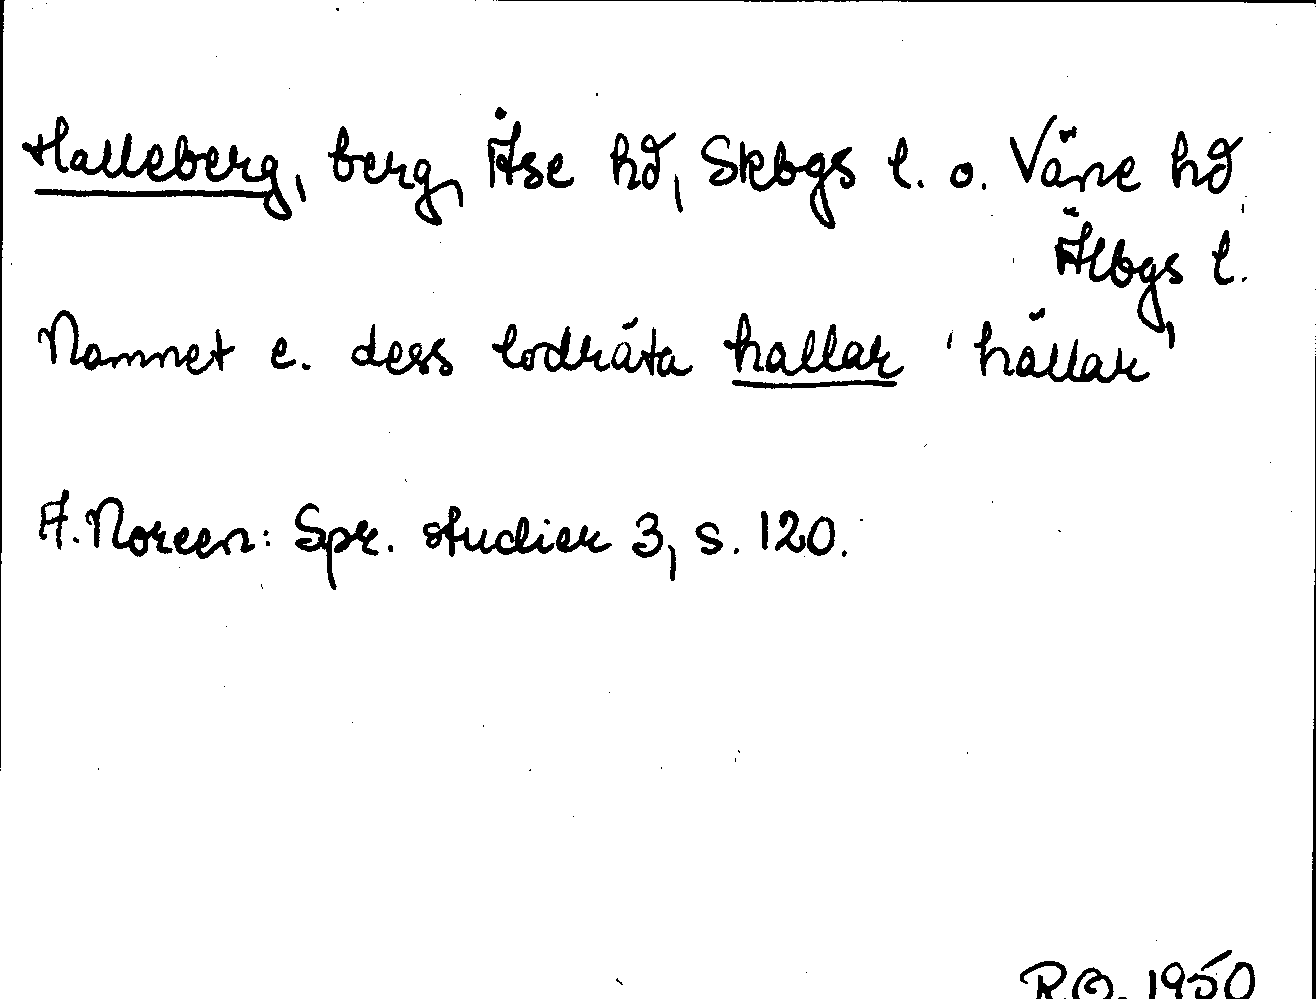 Halleberg, berg, Åse hd, Skbgs l. o. Väne hd,
Älbgs l.
Namnet e. dess lodräta hallar 'hällar'
A. Noreen: Spr. studier 3, s. 120.
R.O. 1950